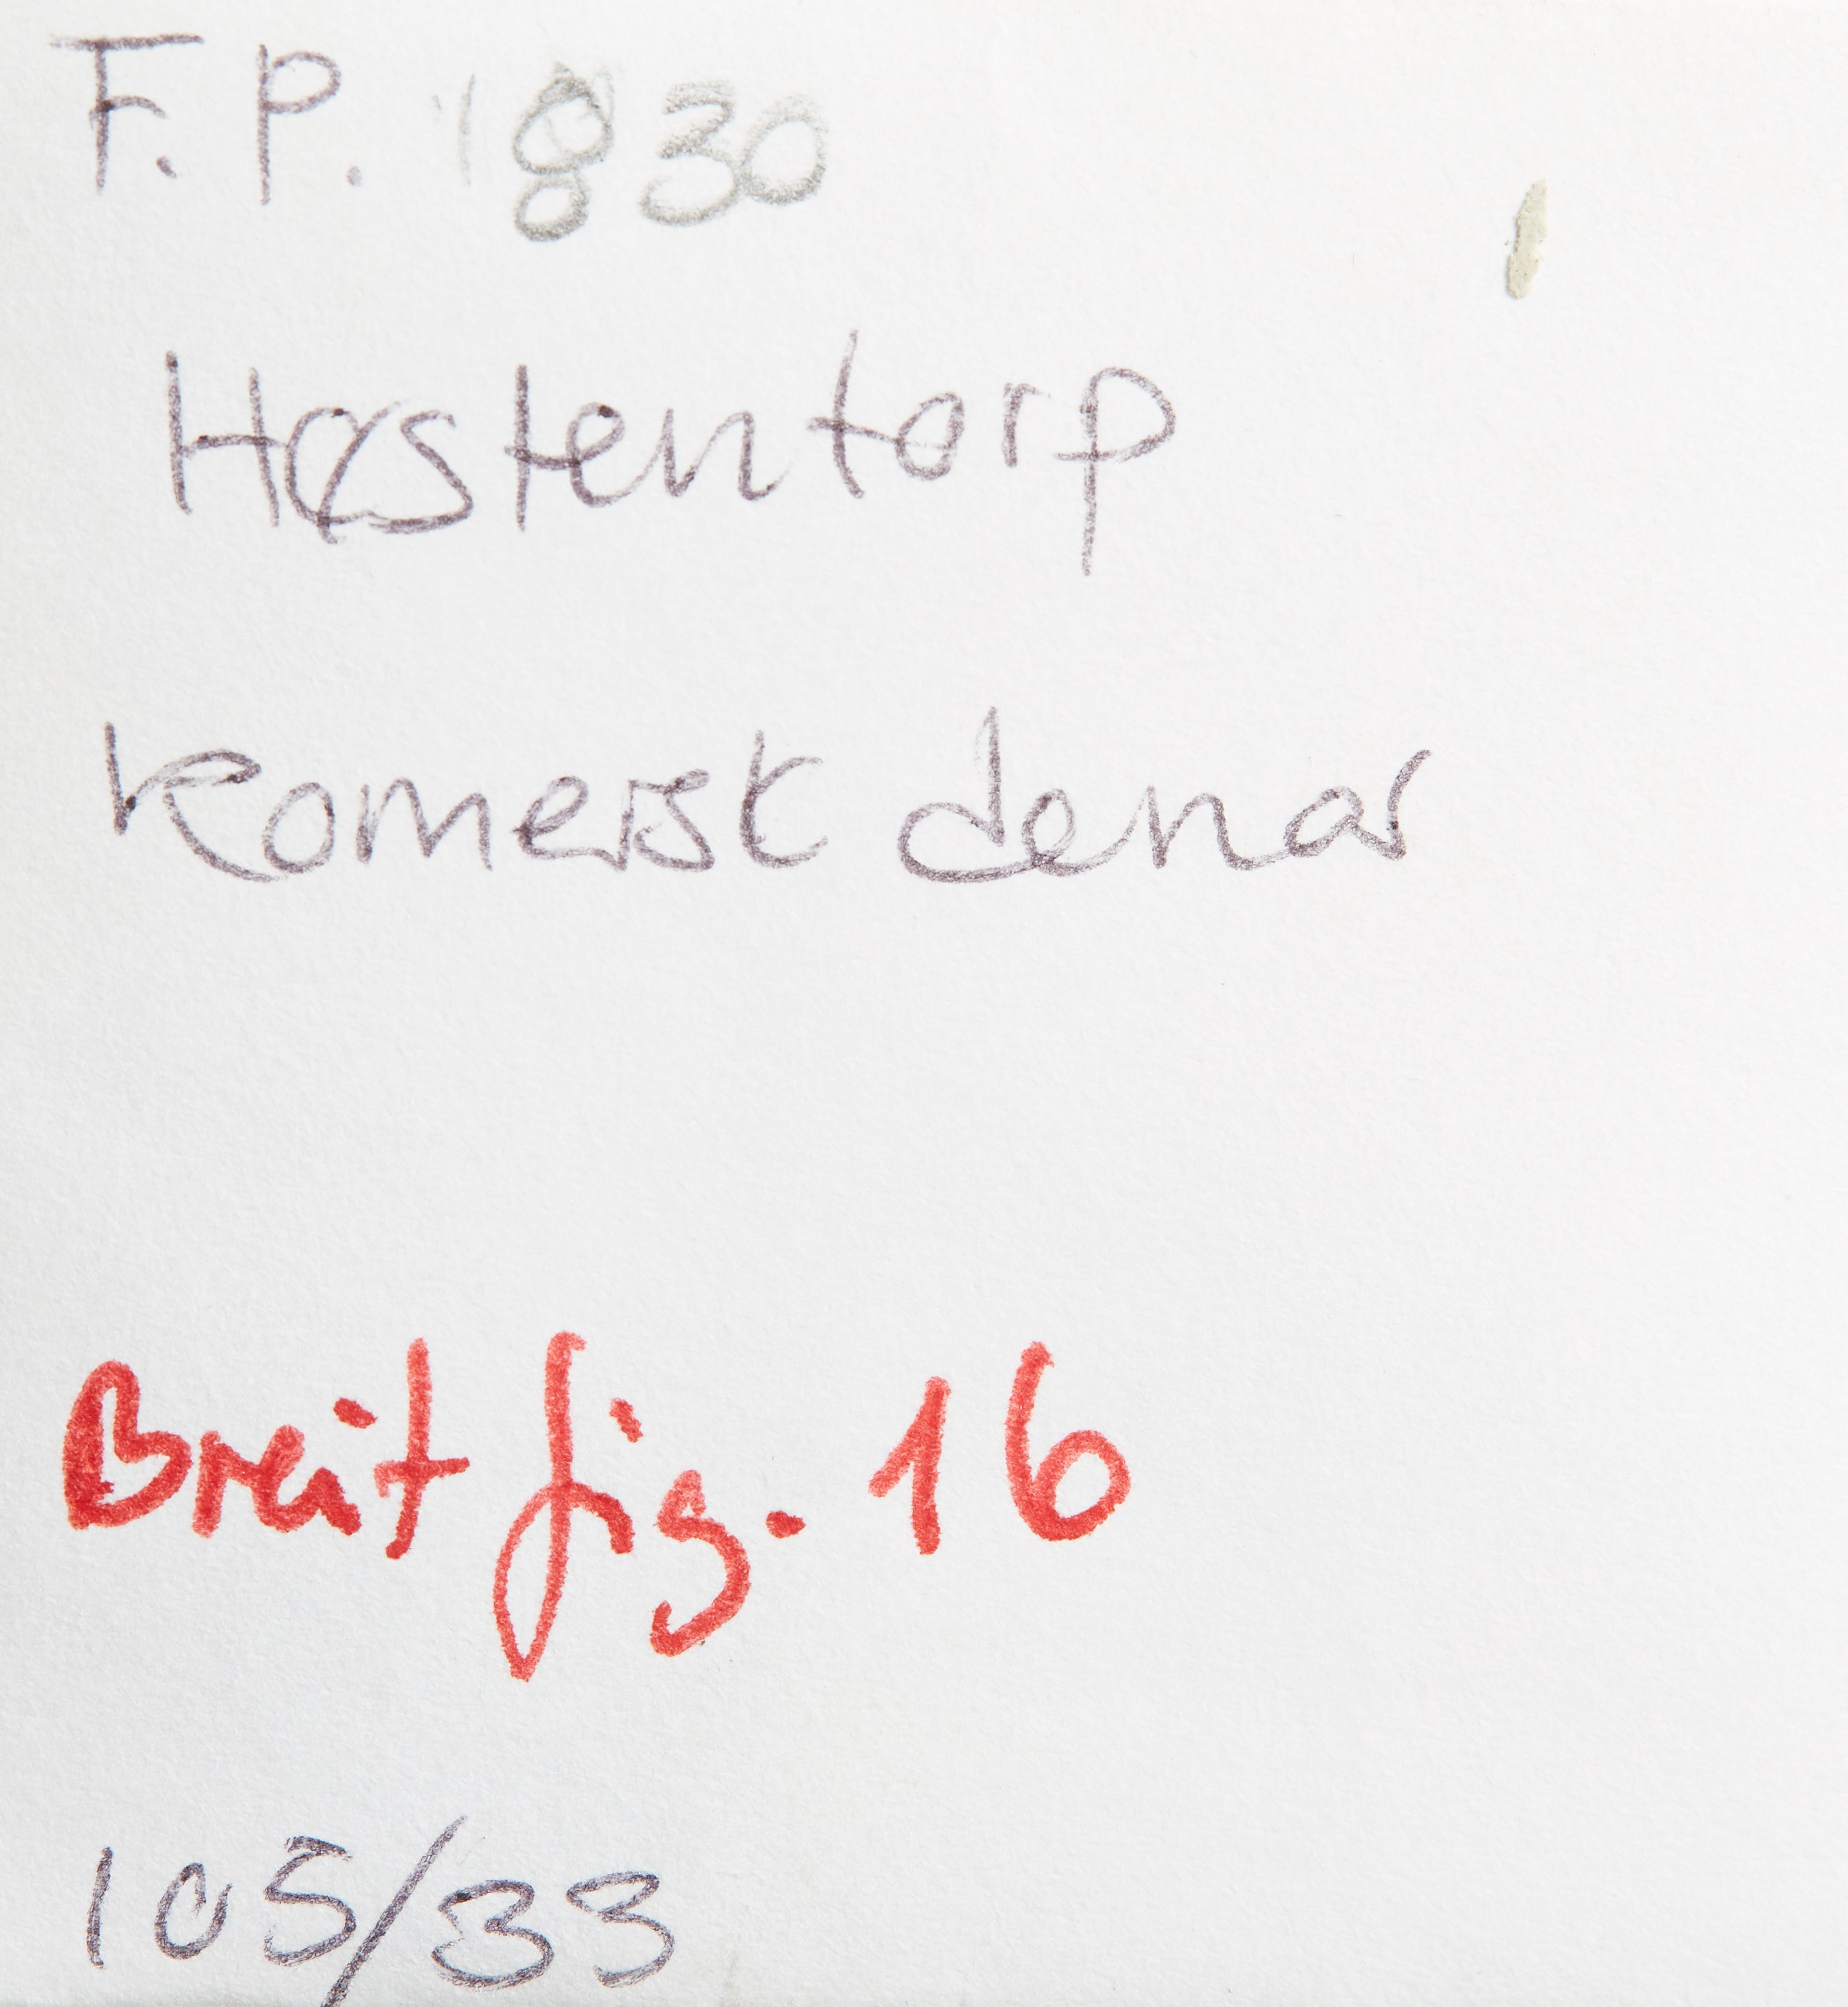 F.P. 1830
Høstentorp
Romersk denar
Breit fig. 16
105/33